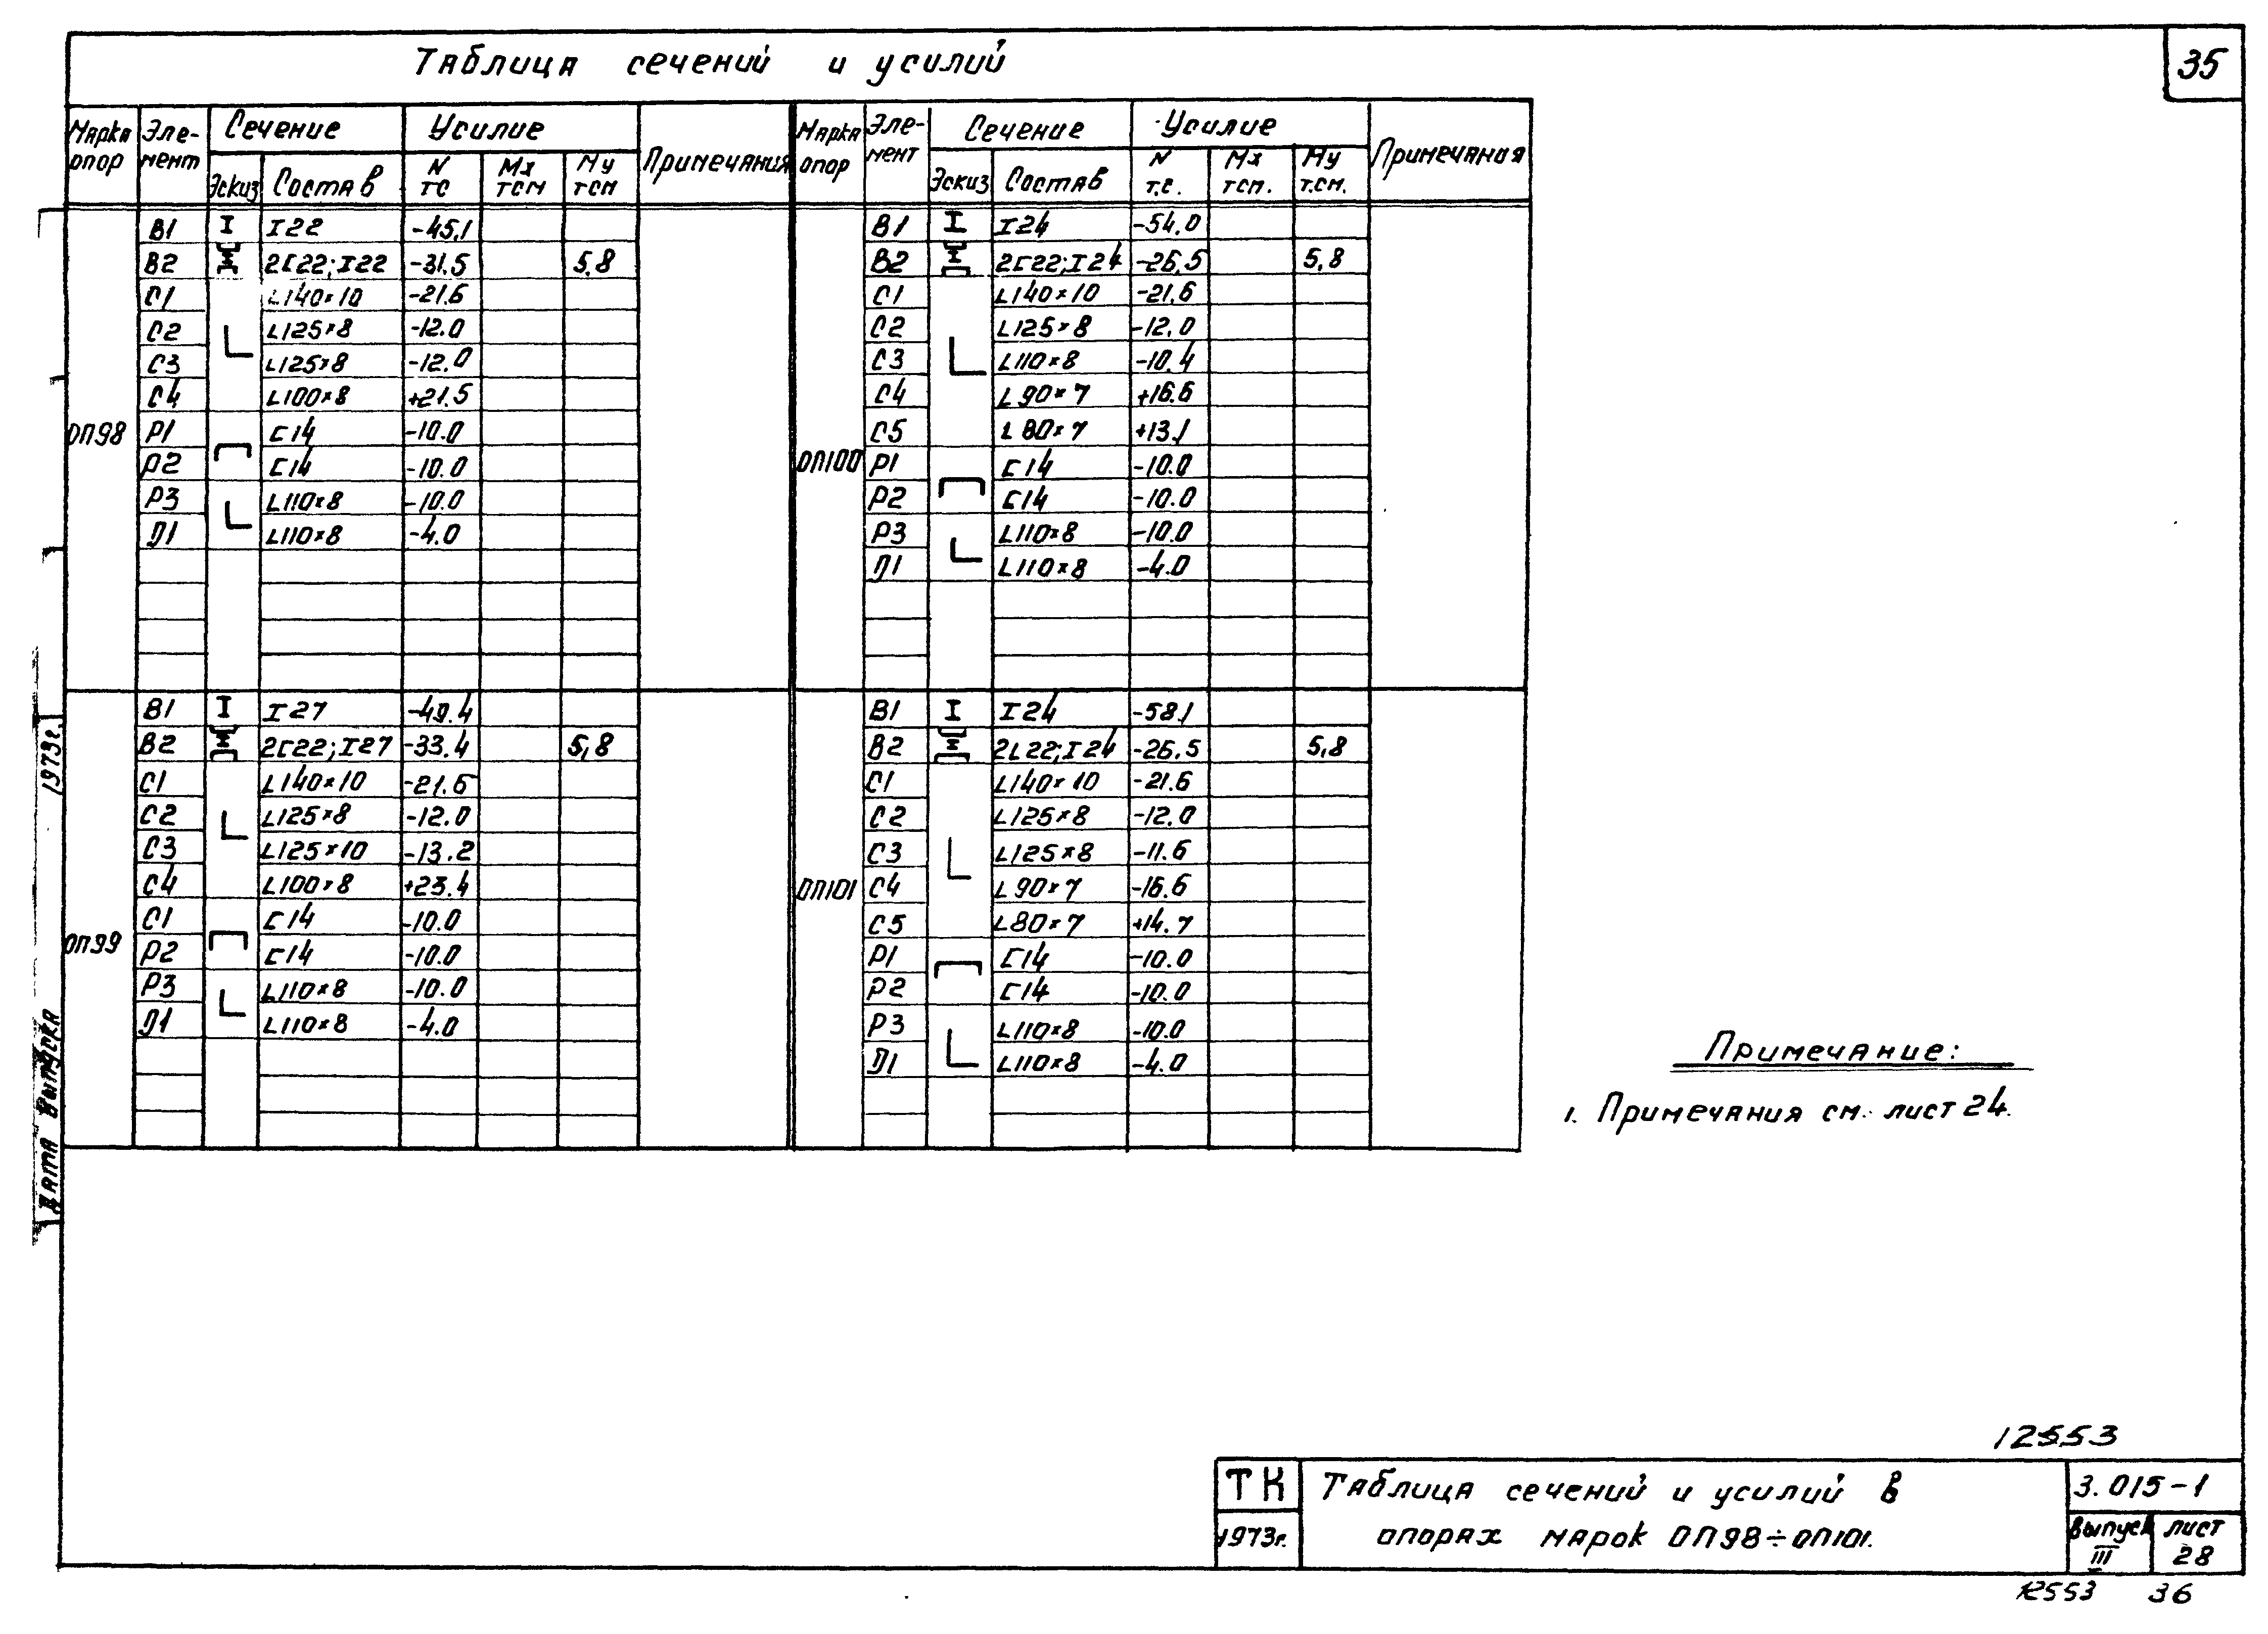 35
Таблица сечений и усилий
Марка опор Эле-мент Сечение Усилие Примечания
Эскиз Состав N тс Мх тсм Му тсм
ОП98
В1 I22 -45,1
В2 2[22; I22 -31.5 5,8
С1 L140×10 -21.6
С2 L125×8 -12.0
С3 L125×8 -12.0
С4 L100×8 +21.5
Р1 [14 -10.0
Р2 [14 -10.0
Р3 L110×8 -10.0
Д1 L110×8 -4.0
ОП99
В1 I27 -49.4
В2 2[22; I27 -33.4 5,8
С1 L140×10 -21.6
С2 L125×8 -12.0
С3 L125×10 -13.2
С4 L100×8 +23.4
С1 [14 -10.0
Р2 [14 -10.0
Р3 L110×8 -10.0
Д1 L110×8 -4.0
Марка опор Эле-мент Сечение Усилие Примечания
Эскиз Состав N т.с. Мх тсм. Му т.см.
ОП100
В1 I24 -54.0
В2 2[22; I24 -26,5 5,8
С1 L140×10 -21,6
С2 L125×8 -12,0
С3 L110×8 -10.4
С4 L90×7 +16.6
С5 L80×7 +13,1
Р1 [14 -10.0
Р2 [14 -10.0
Р3 L110×8 -10.0
Д1 L110×8 -4.0
ОП101
В1 I24 -58,1
В2 2L22; I24 -26.5 5,8
С1 L140×10 -21.6
С2 L125×8 -12.0
С3 L125×8 -11.6
С4 L90×7 -16.6
С5 L80×7 +14.7
Р1 [14 -10.0
Р2 [14 -10.0
Р3 L110×8 -10.0
Д1 L110×8 -4.0
Примечание:
1. Примечания см. лист 24.
Дата выпуска 1973г.
12553
ТК
1973г.
Таблица сечений и усилий в
опорах марок ОП98÷ОП101.
3.015-1
Выпуск III
лист 28
12553 36